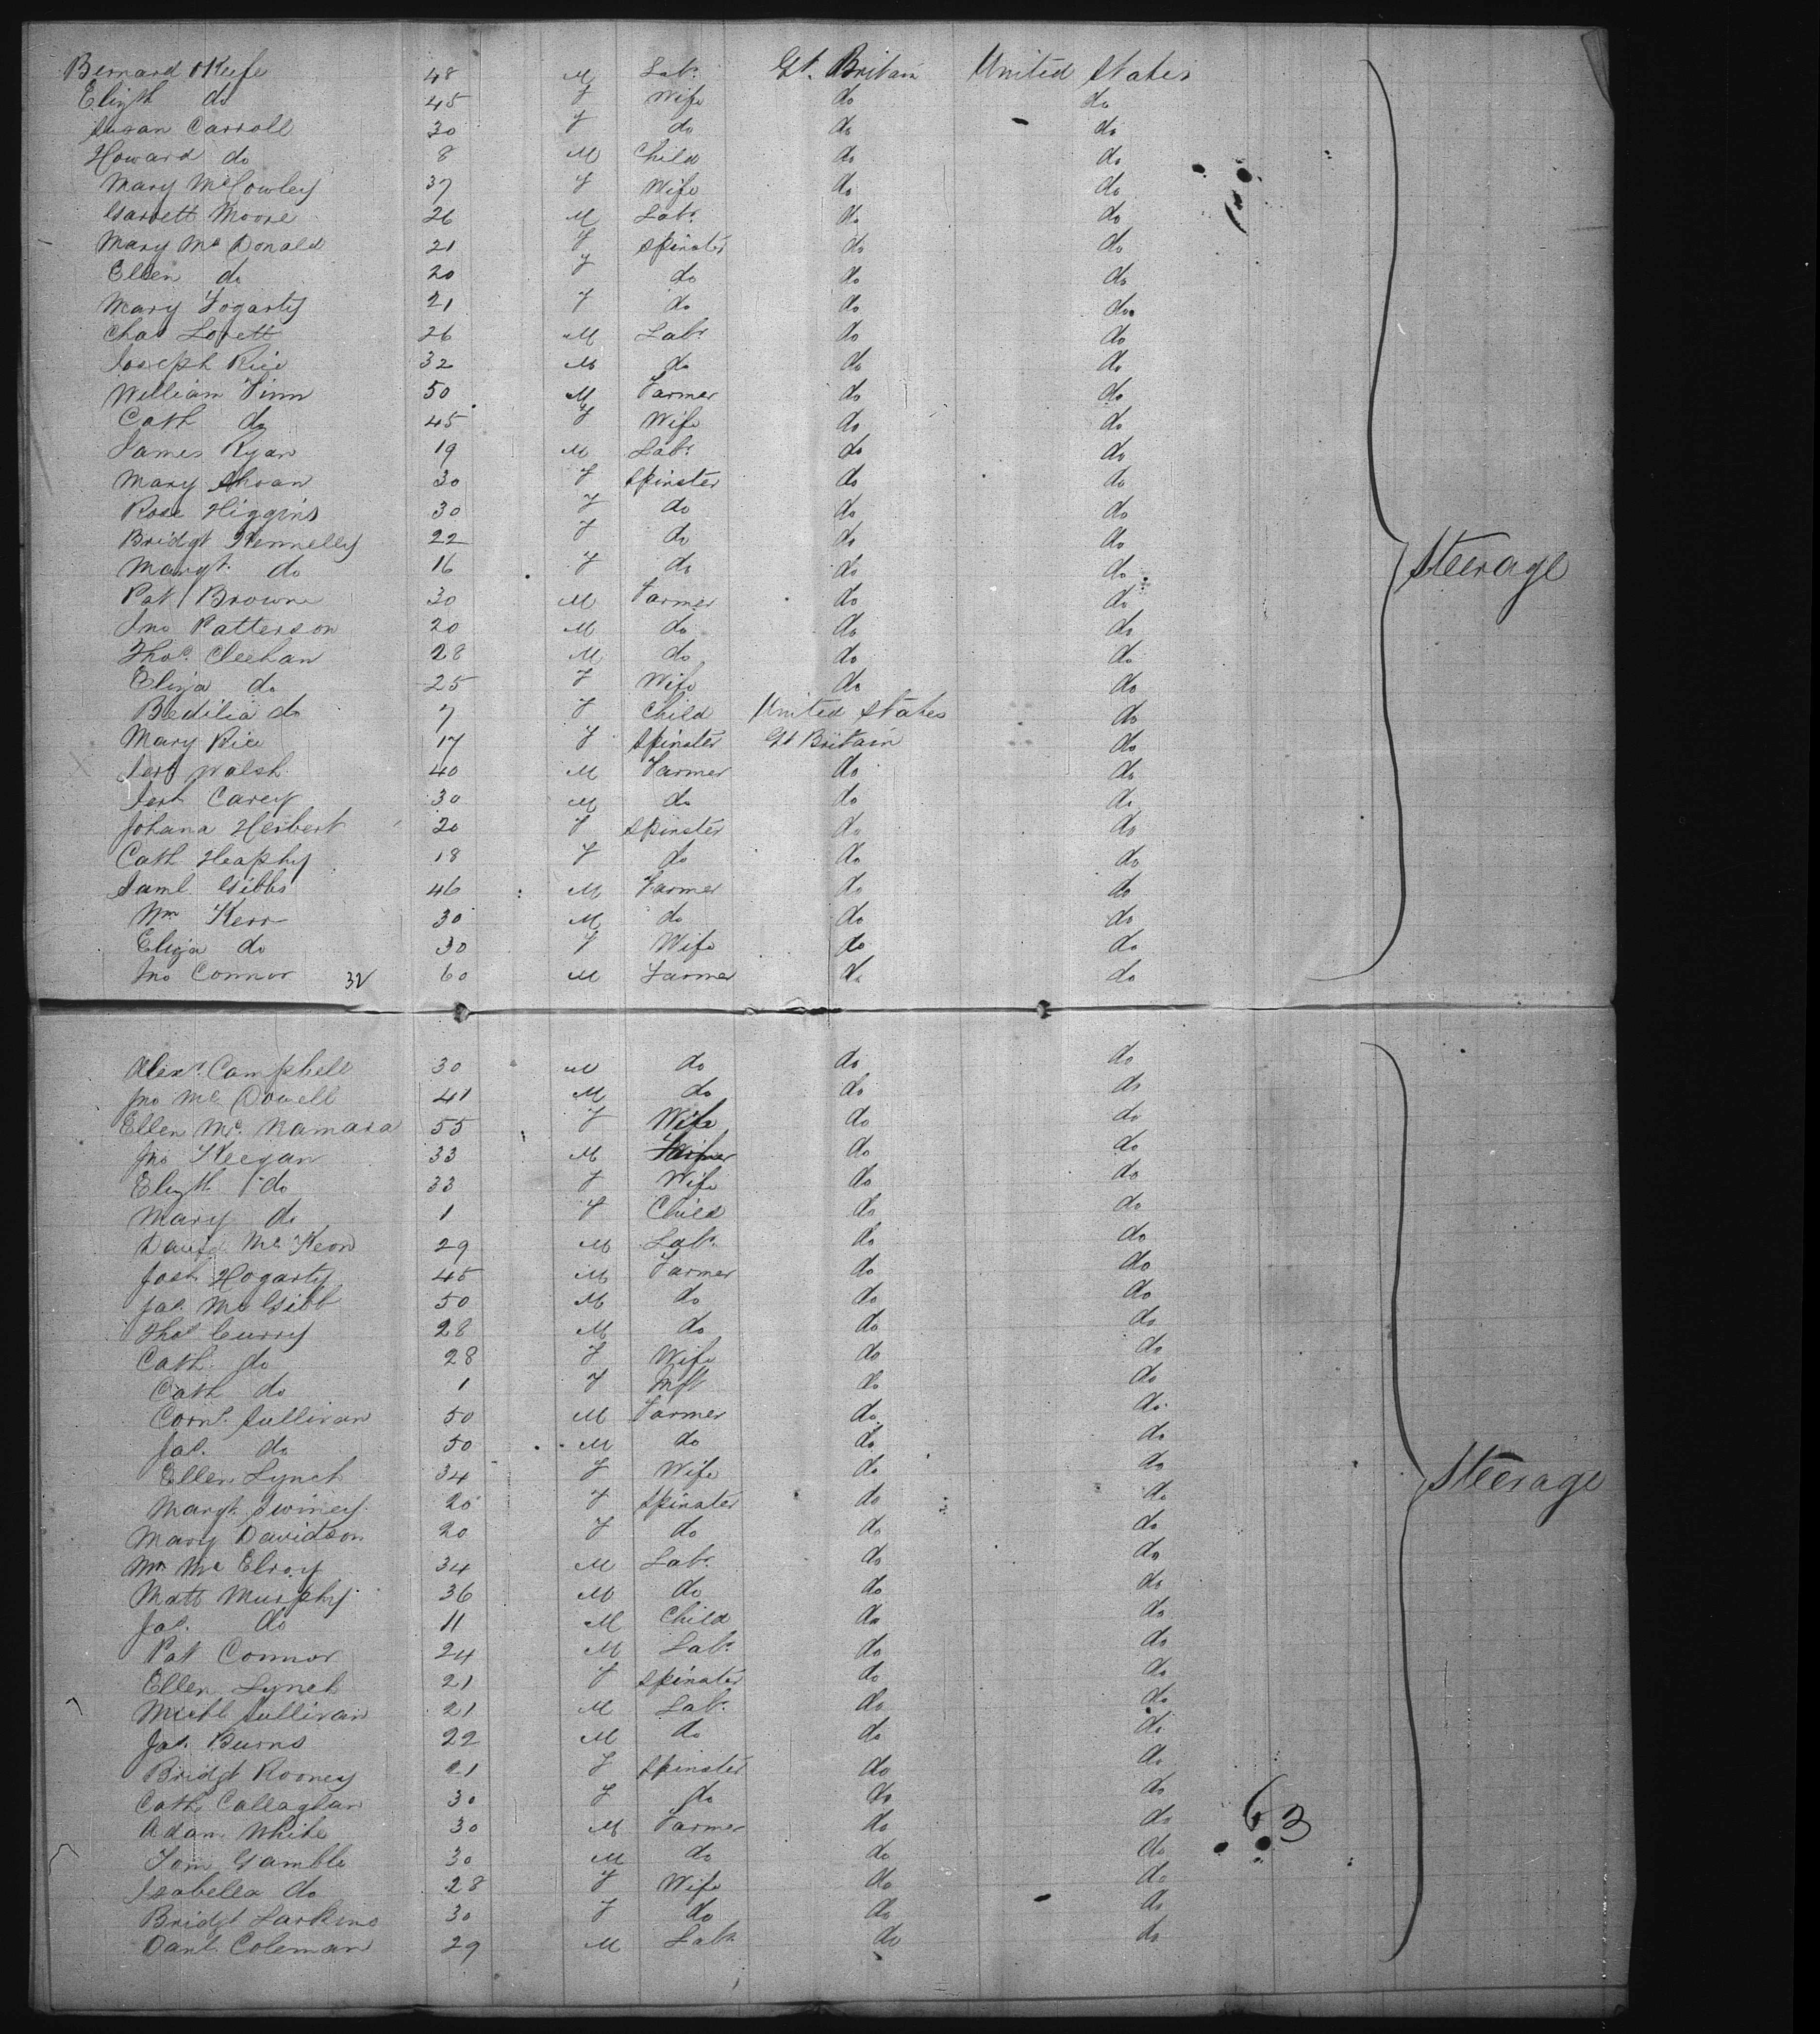 Bernard OKeefe 48 M Labr Gt. Britain United States
Elizth do 45 F Wife do do
Susan Carroll 30 F do do do
Howard do 8 M Child do do
Mary McCowley 37 F Wife do do
Garrett Moore 26 M Labr do do
Mary McDonald 21 F Spinster do do
Ellen do 20 F do do do
Mary Fogarty 21 F do do do
Chas Lovett 26 M Labr do do
Joseph Rice 32 M do do do
William Finn 50 M Farmer do do
Cath do 45 F Wife do do
James Ryan 19 M Labr do do
Mary 30 F Spinster do do
Rose Higgins 30 F do do do
Bridgt Kennelly 22 F do do do
Margt. do 16 F do do do
Steerage
Pat Browne 30 M Farmer do do
Jno Patterson 20 M do do do
Thos. Cleehan 28 M do do do
Eliza do 25 F Wife do do
Bedilia do 7 F Child United States do
Mary Rice 17 F Spinster Gt Britain do
Walsh 40 M Farmer do do
Carey 30 M do do do
Johana Herbert 20 F Spinster do do
Cath Heaphy 18 F do do do
Saml Gibbs 46 M Farmer do do
Wm Kerr 30 M do do do
Eliza do 30 F Wife do do
Jno Connor 32 60 M Farmer do do
Alexr. Campbell 30 M do do do
Jno McDowell 41 M do do do
Ellen Mc. Namara 55 F Wife do do
Jno Keegan 33 M Farmer do do
Elizth do 33 F Wife do do
Mary do 1 F Child do do
David McKeon 29 M Labr do do
Josh Hogarty 45 M Farmer do do
Jas. McGibb 50 M do do do
Thos Curry 28 M do do do
Cath. do 28 F Wife do do
Cath do 1 F Inft do do
Corns. Sullivan 50 M Farmer do do
Jas. do 50 M do do do
Ellen Lynch 34 F Wife do do
Steerage
Margt. Swiney 20 F Spinster do do
Mary Davidson 20 F do do do
Wm McElroy 34 M Labr do do
Matt Murphy 36 M do do do
Jas. do 11 M Child do do
Pat Connor 24 M Labr do do
Ellen Lynch 21 F Spinster do do
Michl Sullivan 21 M Labr do do
Jas. Burns 22 M do do do
Bridgt Rooney 21 F Spinster do do
Cath Callaghan 30 F do do do
Adam White 30 M Farmer do do 63
Tom Gamble 30 M do do do
Isabella do 28 F Wife do do
Bridgt Larkins 30 F do do do
Danl. Coleman 29 M Labr do do